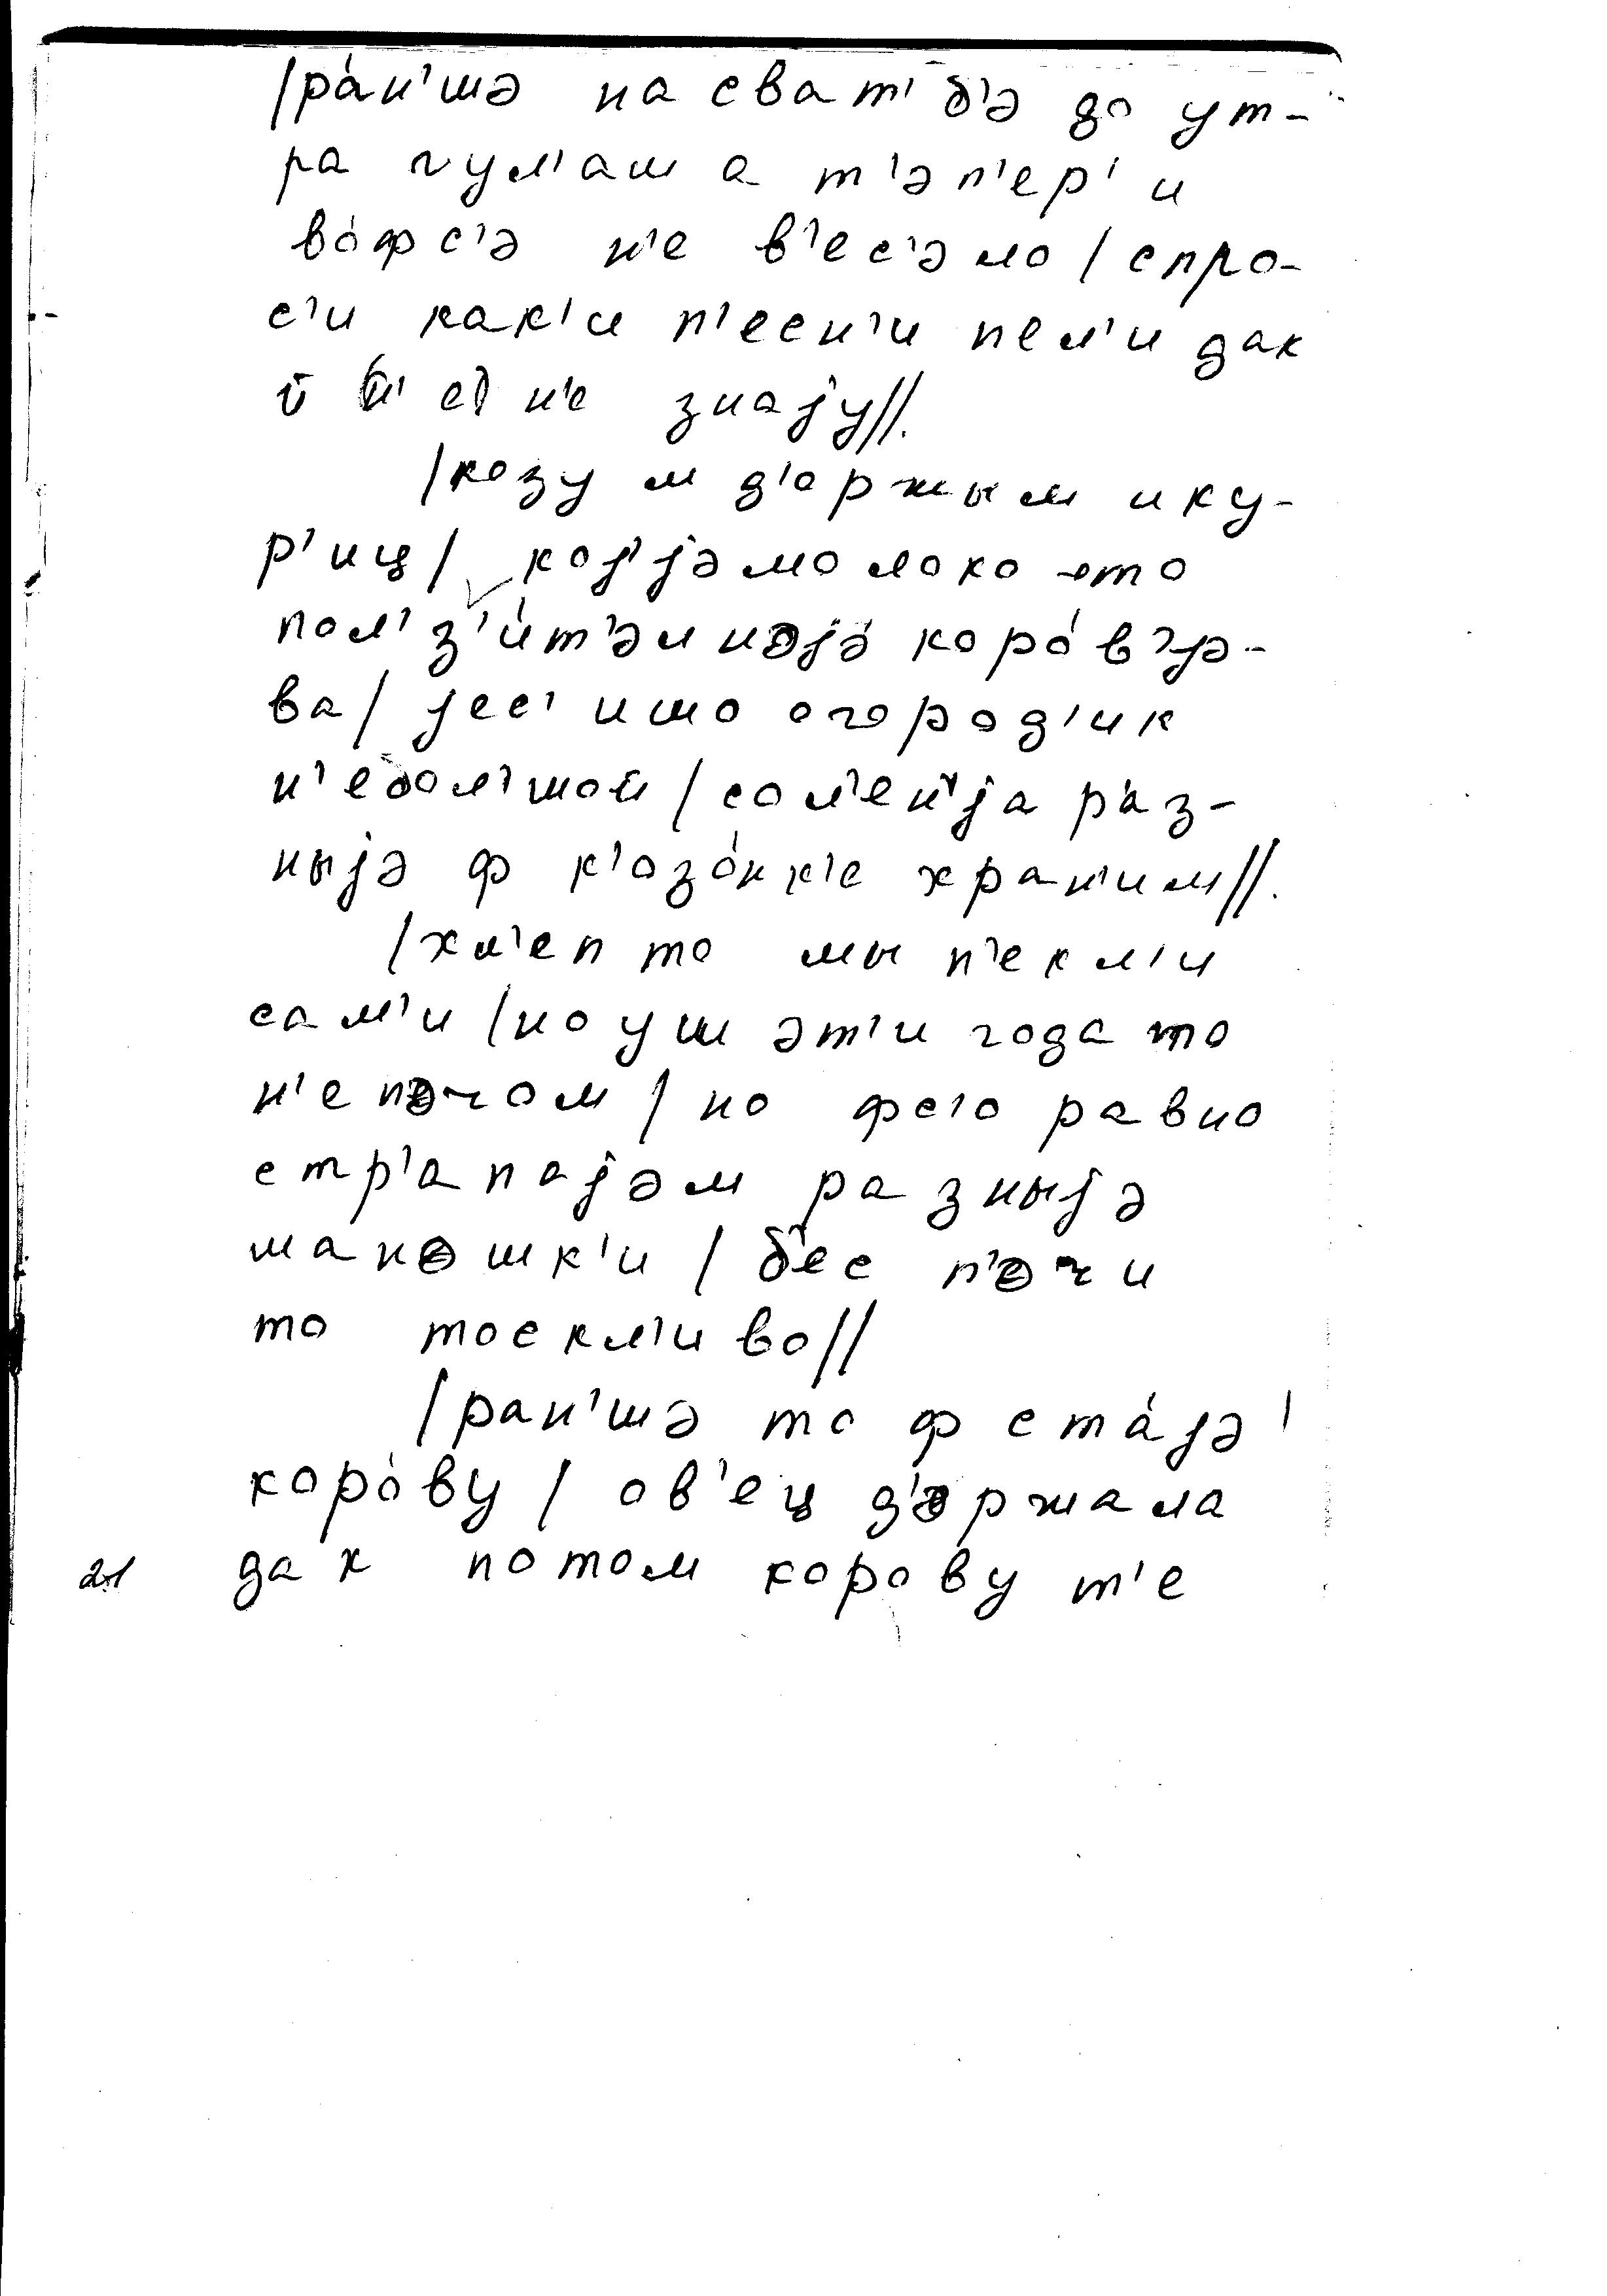 /ра́н'шә на сват'б'ә до ут-
ра гул'аш а т'әп'ер' и
во́фс'ә н'е в'ес'әло / спро-
с'и как'и п'есн'и пел'и дак
н'е знаjу//.
/козу м д'оржым и ку-
р'иц / коз'jә молоко -то
пол'з'и́т'әлнәjә коро́в'jә-
ва / jес' ишо огород'ик
н'ебол'шой / сол'ен'jа раз-
ныjә ф к'озо́нк'е хран'им//.
/хл'еп то мы п'екл'и
сам'и / но уш әт'и года то
н'е почом / но фс'о равно
стр'апаjәм разныjә
маношк'и / б'ес п'ечи
то тоскл'иво//
/ран'шә то ф ста́jә
коро́ву / ов'ец д'оржала
дак потом корову т'е
21